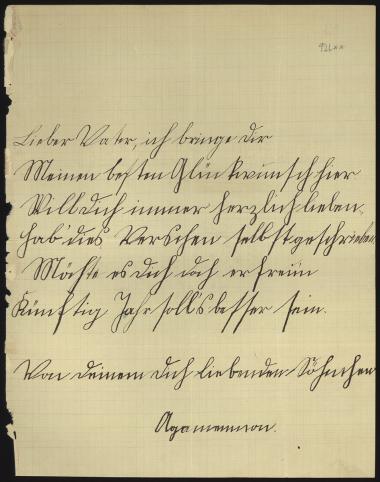 92b**
Lieber Vater, ich bringe dir
Meinen besten Glückwunsch hier
Will dich immer herzlich lieben,
hab' dies Verschen selbst geschrieben
Möchte es dich doch erfreun
Künftig Jahr soll's besser sein.
Von deinem dich liebenden Söhnchen
Agamemnon.